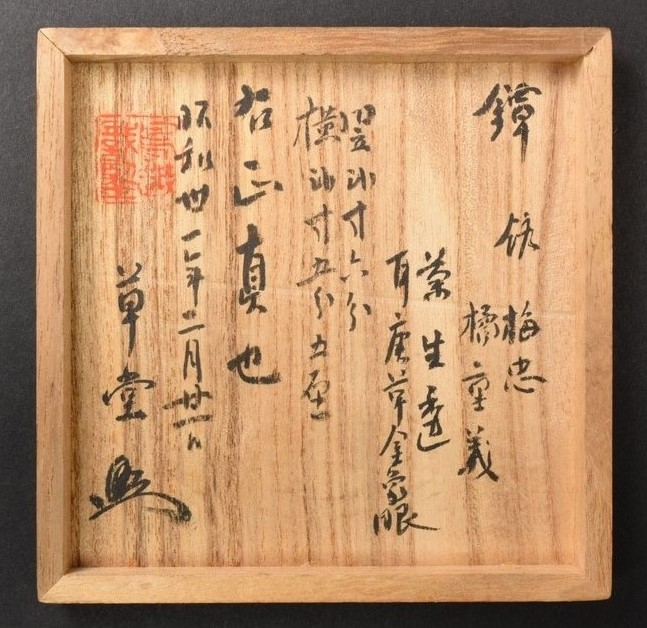 鐔 銘 梅忠
橘重義
生透
耳唐草金象眼
竪弍寸六分
横弍寸五分五厘
右正真也
昭和卅一年二月廿一日
草堂